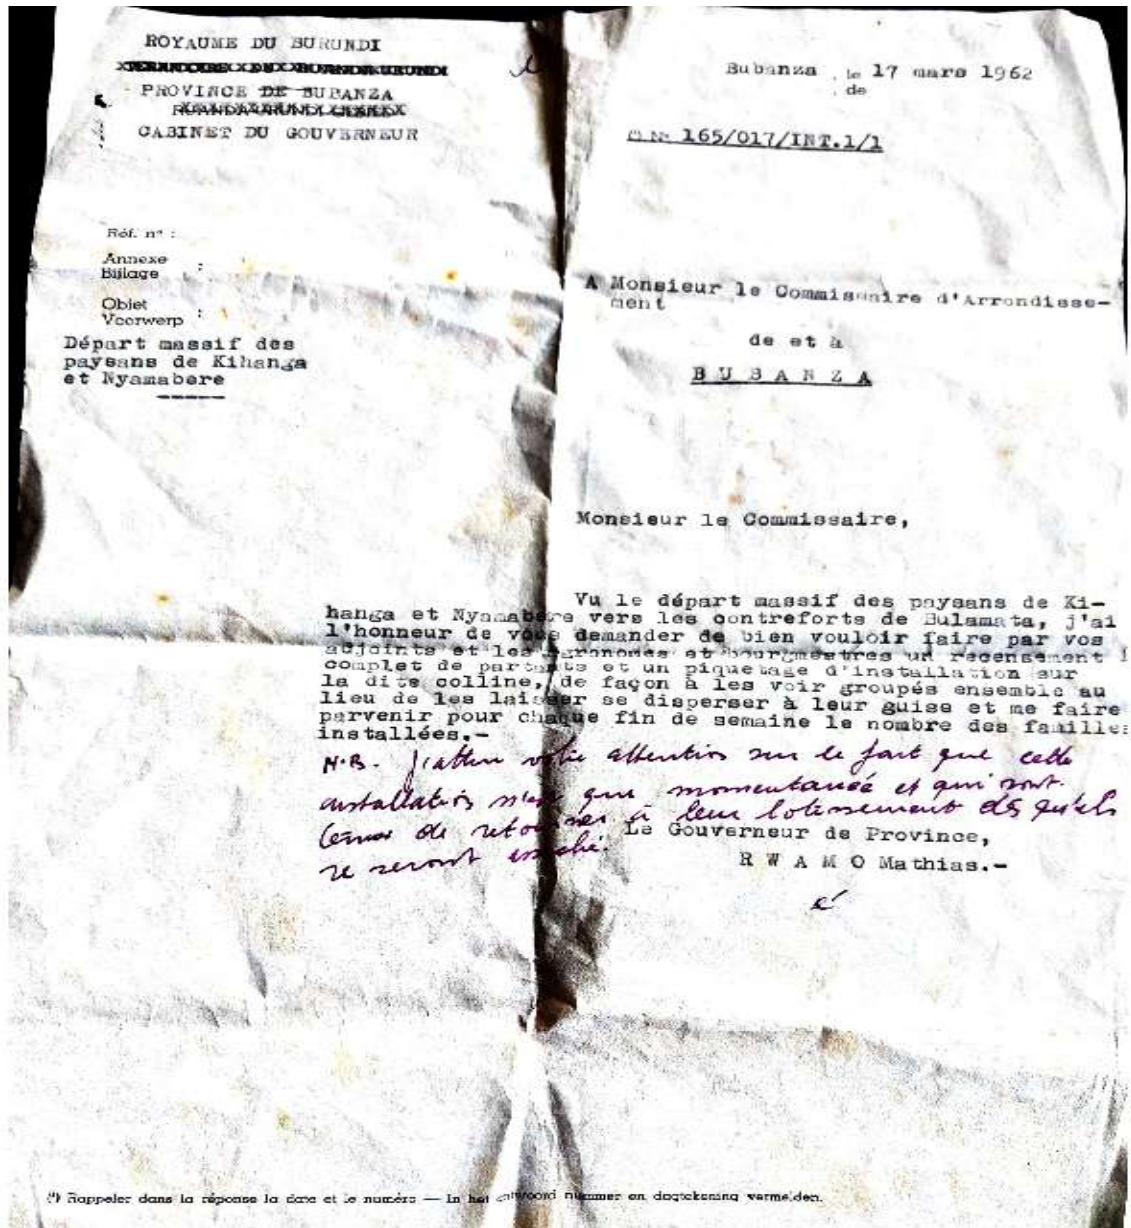 ROYAUME DU BURUNDI
PROVINCE DE BUBANZA
CABINET DU GOUVERNEUR
Bubanza , le 17 mars 1962
de
N° 165/017/INT.1/1
Réf. n° :
Annexe :
Bijlage
Objet :
Voorwerp
Départ massif des
paysans de Kihanga
et Nyamabere
A Monsieur le Commissaire d'Arrondisse-
ment
de et à
BUBANZA
Monsieur le Commissaire,
Vu le départ massif des paysans de Ki-
hanga et Nyamabere vers les contreforts de Bulamata, j'ai
l'honneur de vous demander de bien vouloir faire par vos
adjoints et les agronomes et bourgmestres un recensement
complet de partants et un piquetage d'installation sur
la dite colline, de façon à les voir groupés ensemble au
lieu de les laisser se disperser à leur guise et me faire
parvenir pour chaque fin de semaine le nombre des familles
installées.-
N.B. J'attire votre attention sur le fait que cette
installation n'est que momentanée et qui sont
tenus de retourner à leur lotissement dès qu'ils
se seront
Le Gouverneur de Province,
RWAMO Mathias.-
(¹) Rappeler dans la réponse la date et le numéro — In het antwoord nummer en dagtekening vermelden.